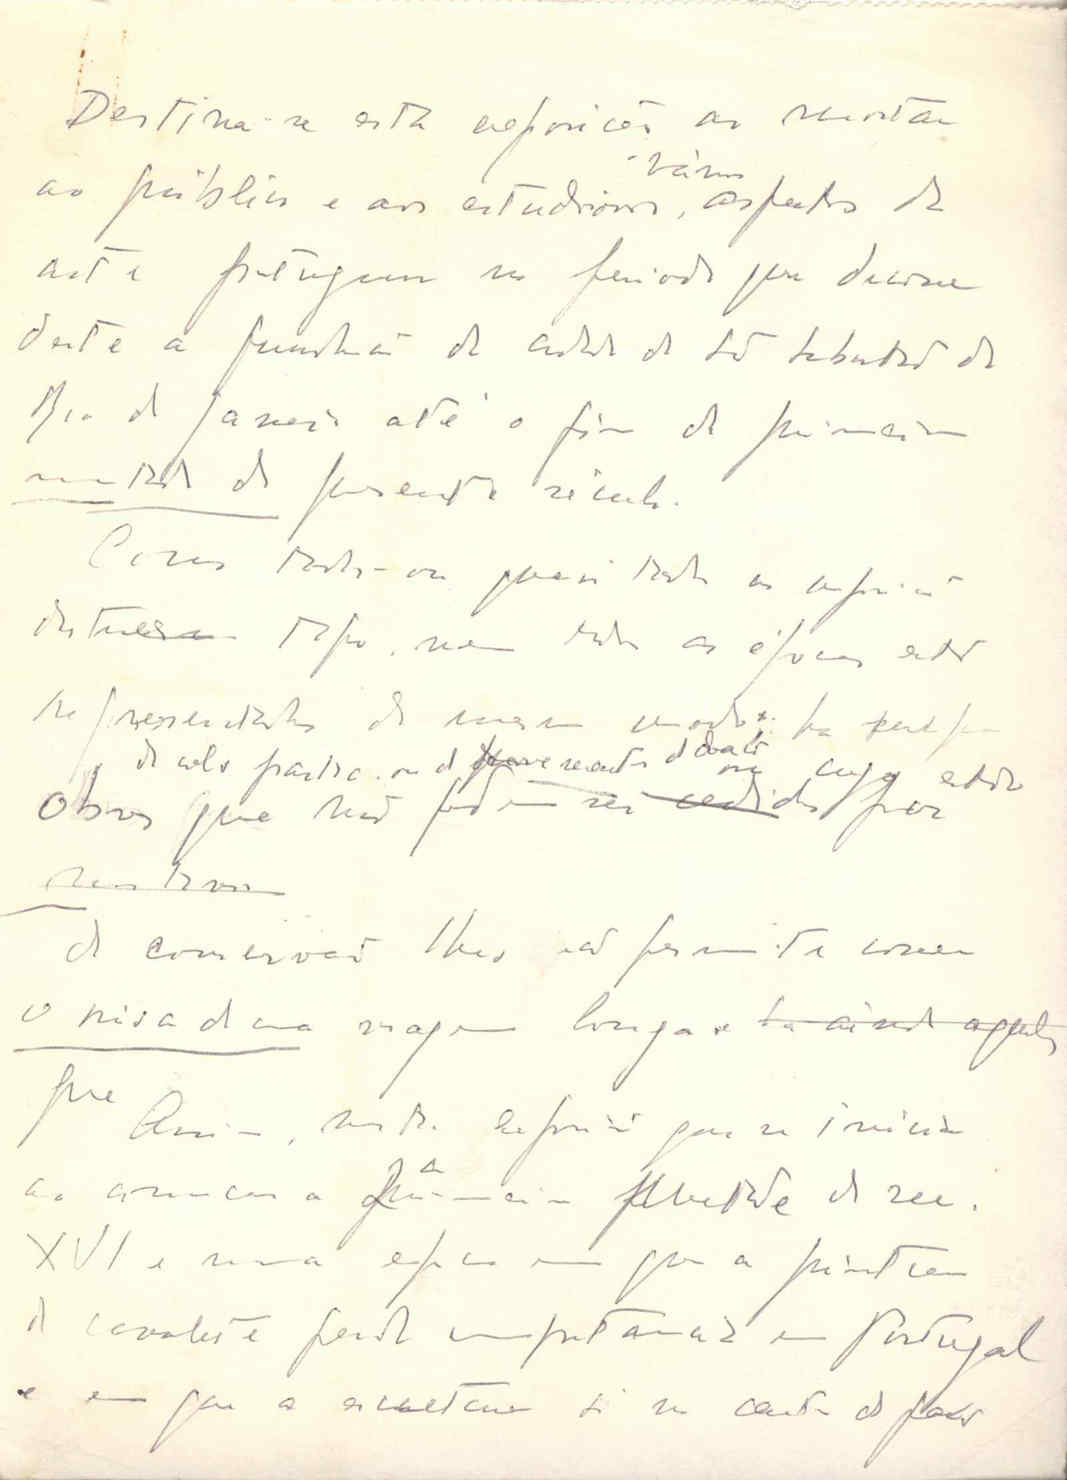 Destina-se esta exposição a mostrar
ao público e aos estudiosos, vários aspectos da
arte portuguesa no período que decorre
desde a fundação da cidade de São Sebastião do
Rio de Janeiro até o fim da primeira
metade do presente século.
Como todas ou quasi todas as exposições
deste tipo, nem todas as épocas estão
representadas do mesmo modo
Obras que não podem ser cedidas por
cujo estado
de conservação lhes não permite correr
o risco de uma viagem longa e há ainda aquelas
que
Assim, nesta exposição que se inicia
ao começar a 2ª metade do sec.
XVI e numa época em que a pintura
de cavalete perde importância em Portugal
e em que a escultura